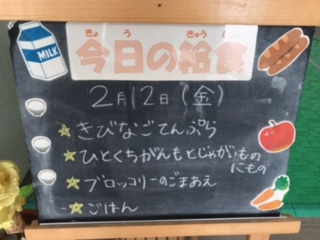 MILK
きょう きゅうしょく
今日の給食
2月12日(金)
☆きびなごてんぷら
☆ひとくちがんもとじゃがいもの
にもの
☆ブロッコリーのごまあえ
☆ごはん